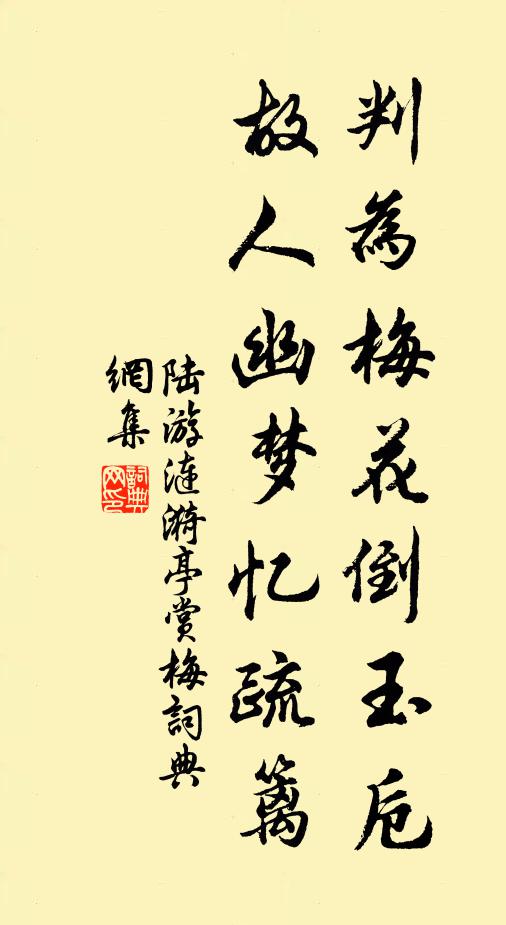 判為梅花倒玉卮
故人幽梦忆疏篱
陆游涟漪亭赏梅詞典
網集
詞典
网印